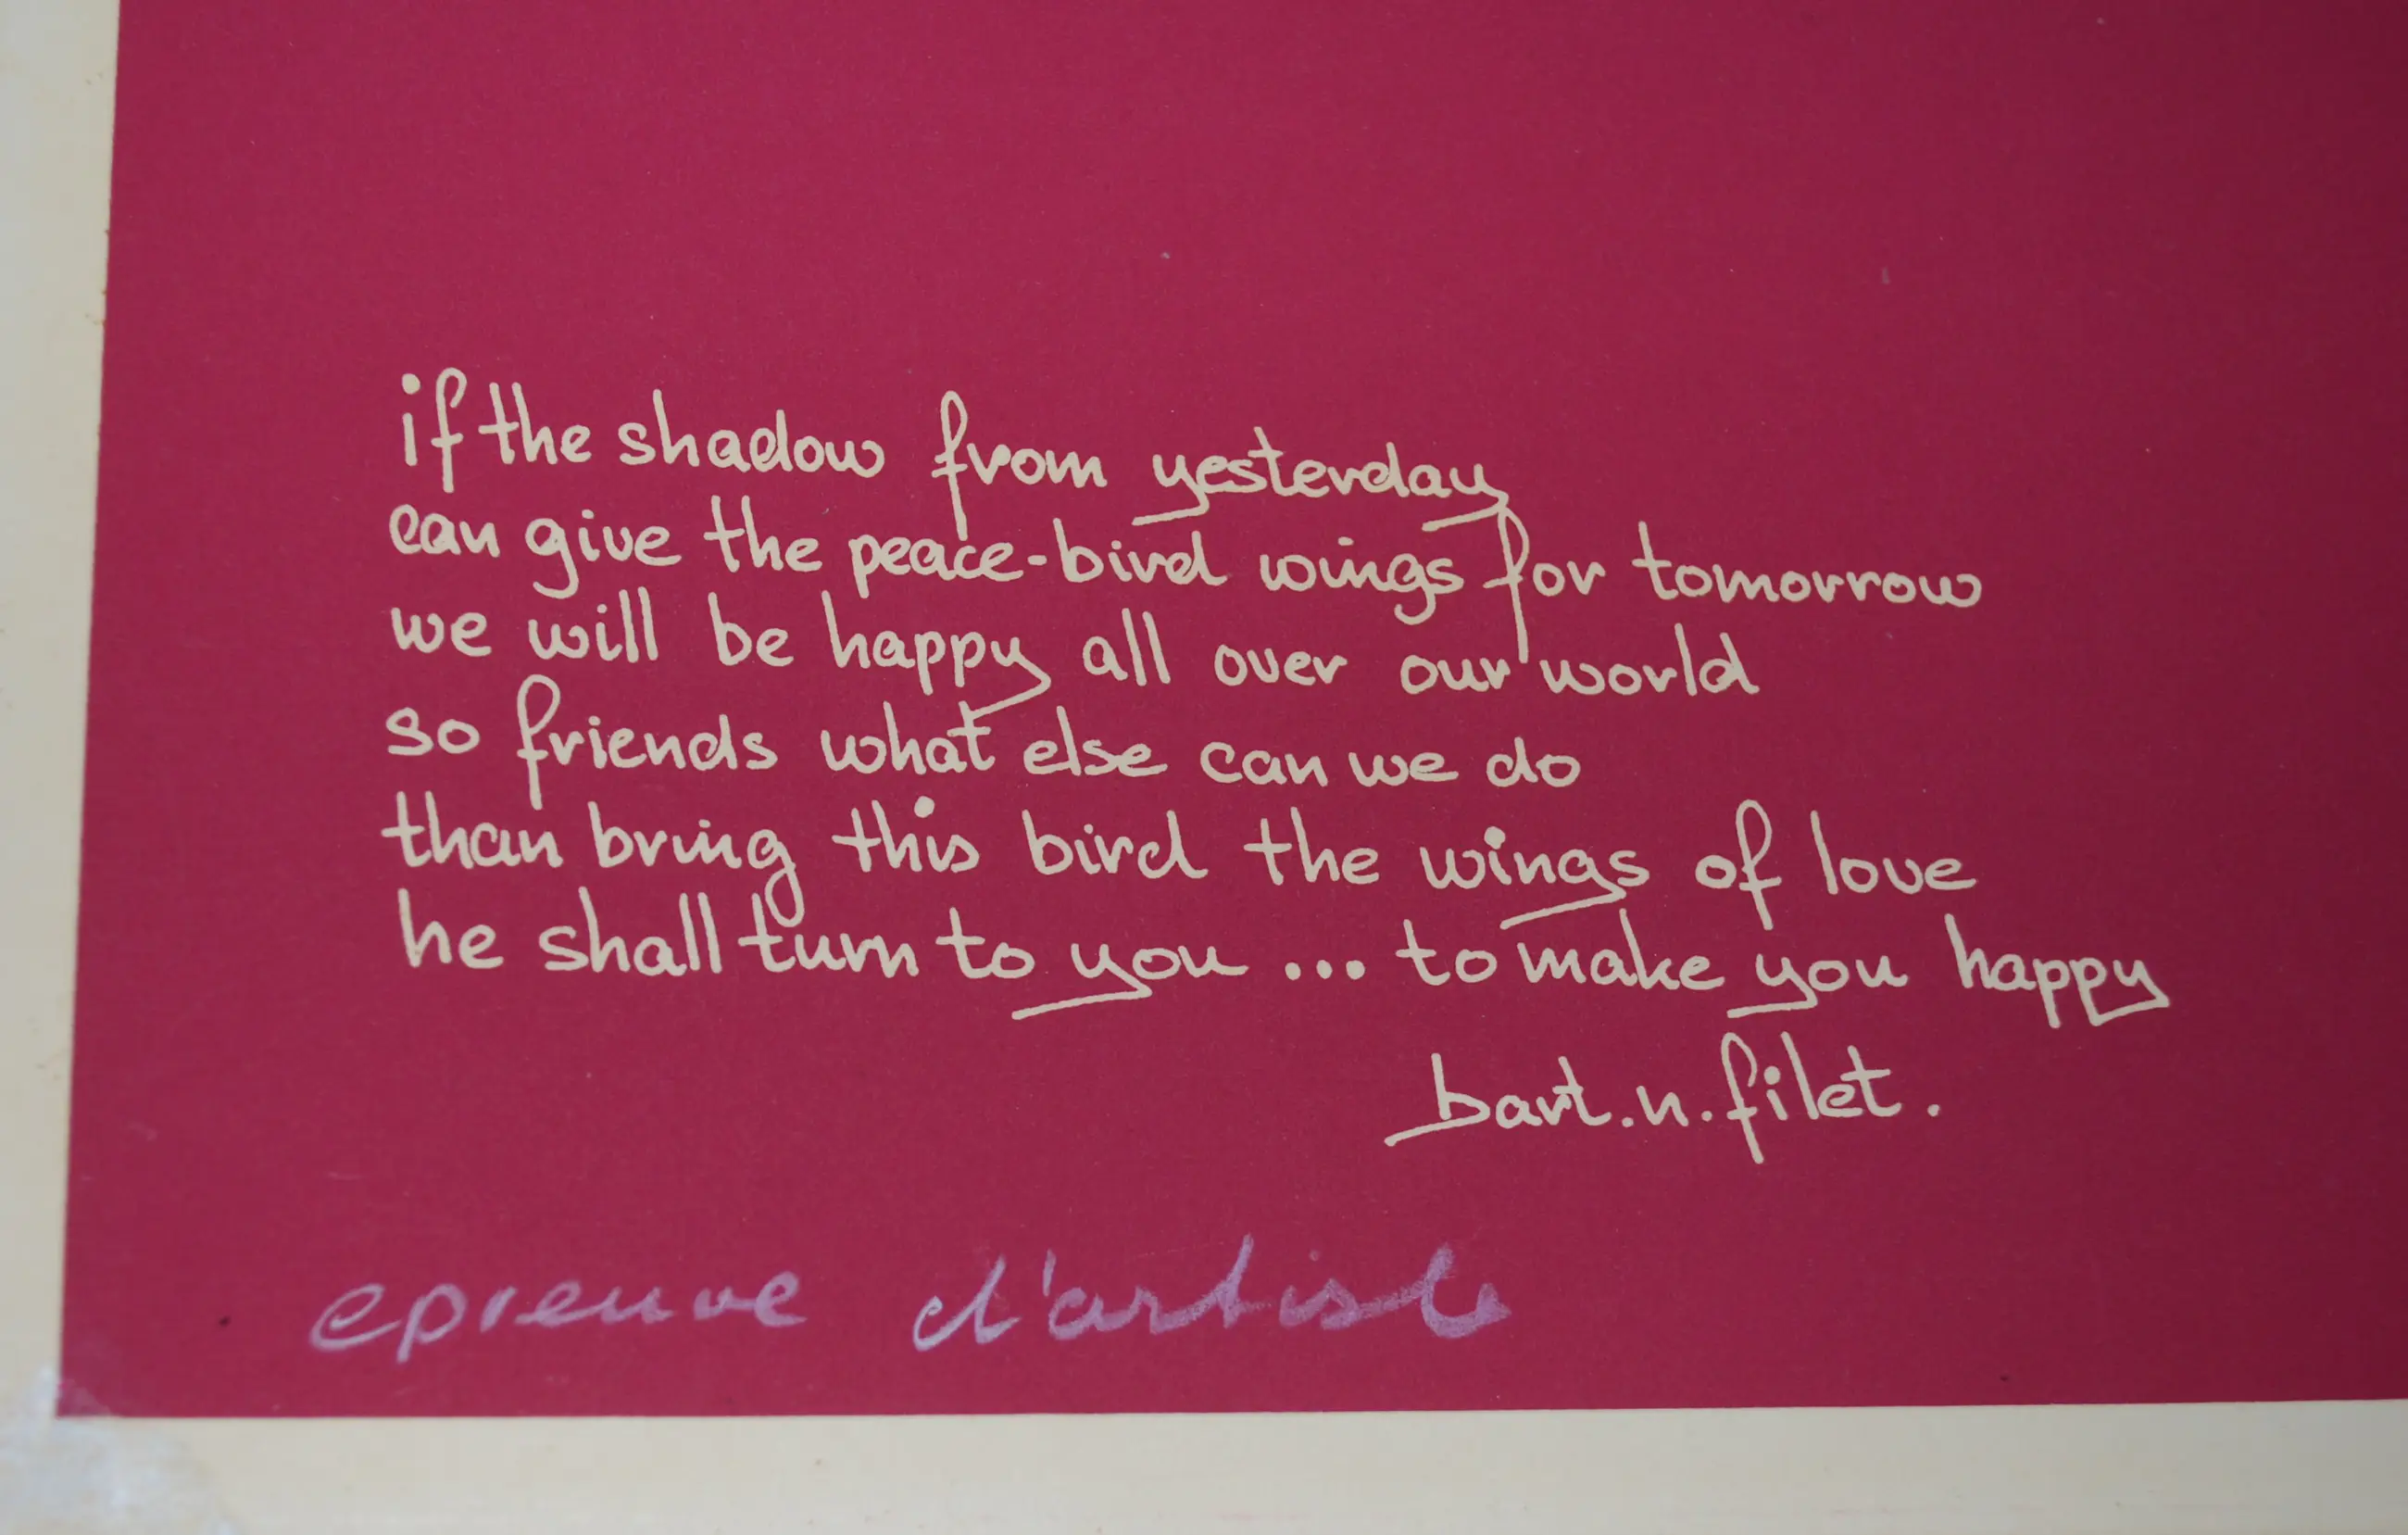 if the shadow from yesterday
can give the peace-bird wings for tomorrow
we will be happy all over our world
so friends what else can we do
than bring this bird the wings of love
he shall turn to you ... to make you happy
bart.n.filet.
epreuve d'artiste